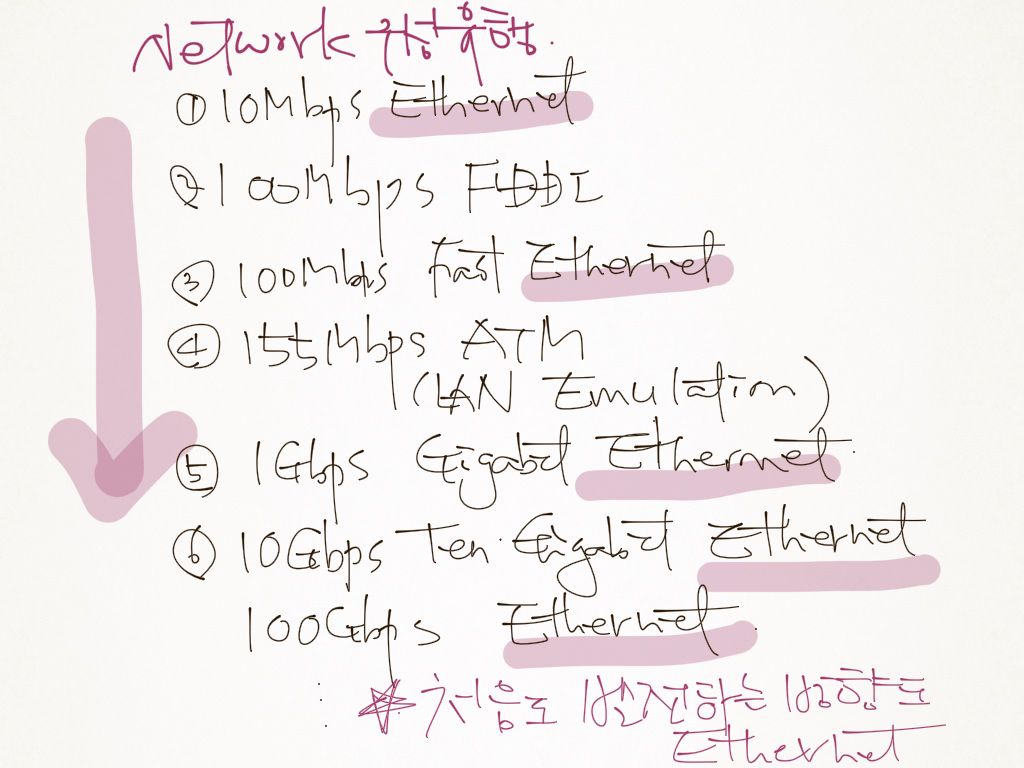 Network
① 10Mbps Ethernet
② 100Mbps FDDI
③ 100Mbps Fast Ethernet
④ 155Mbps ATM
(LAN Emulation)
⑤ 1Gbps Gigabit Ethernet
⑥ 10Gbps Ten Gigabit Ethernet
100Gbps Ethernet
처음도 발전하는 방향도
Ethernet